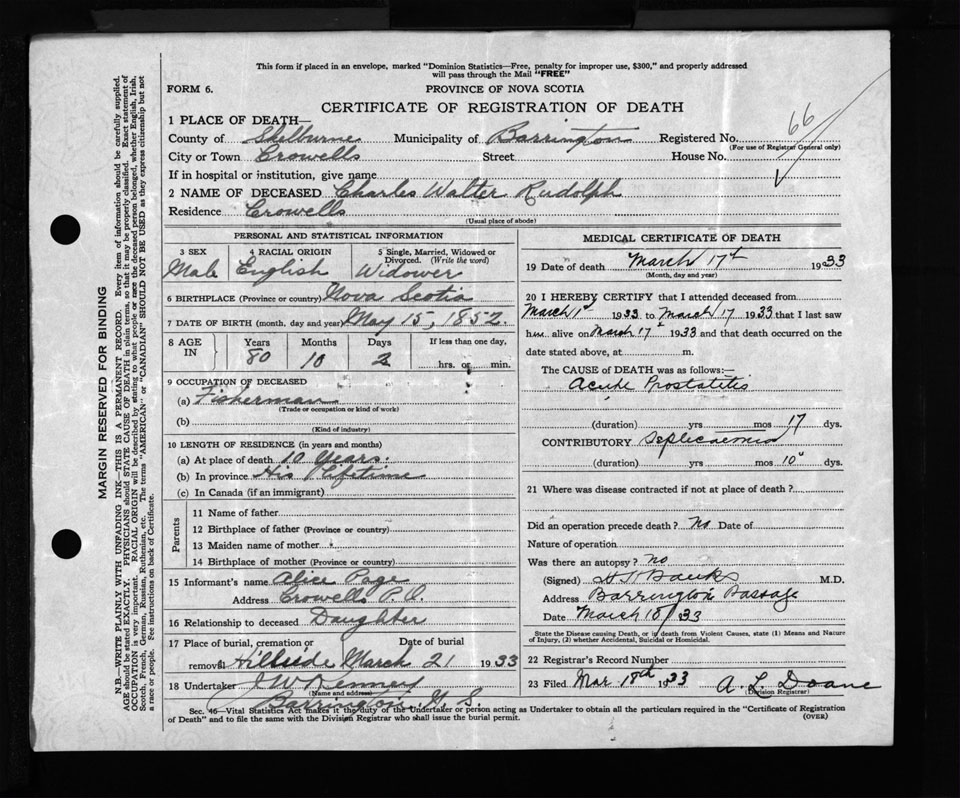 This form if placed in an envelope, marked "Dominion Statistics—Free, penalty for improper use, $300," and properly addressed
will pass through the Mail "FREE"
FORM 6.
PROVINCE OF NOVA SCOTIA
CERTIFICATE OF REGISTRATION OF DEATH
66
1 PLACE OF DEATH—
County of Shelburne Municipality of Barrington Registered No.
(For use of Registrar General only)
City or Town Crowells Street House No.
If in hospital or institution, give name
2 NAME OF DECEASED Charles Walter Rudolph
Residence Crowells
(Usual place of abode)
PERSONAL AND STATISTICAL INFORMATION
3 SEX 4 RACIAL ORIGIN 5 Single, Married, Widowed or Divorced. (Write the word)
Male English Widower
6 BIRTHPLACE (Province or country) Nova Scotia
7 DATE OF BIRTH (month, day and year) May 15, 1852.
8 AGE IN Years Months Days If less than one day,
80 10 2 hrs. or min.
9 OCCUPATION OF DECEASED
(a) Fisherman
(Trade or occupation or kind of work)
(b)
(Kind of industry)
10 LENGTH OF RESIDENCE (in years and months)
(a) At place of death 10 Years.
(b) In province His Lifetime
(c) In Canada (if an immigrant)
Parents
11 Name of father
12 Birthplace of father (Province or country)
13 Maiden name of mother
14 Birthplace of mother (Province or country)
15 Informant's name Alice Page
Address Crowells P.O.
16 Relationship to deceased Daughter
17 Place of burial, cremation or Date of burial
removal Hillside March 21 1933
18 Undertaker J W Denney
(Name and address)
Barrington N. S.
MEDICAL CERTIFICATE OF DEATH
19 Date of death March 17th 1933
(Month, day and year)
20 I HEREBY CERTIFY that I attended deceased from
March 1st 1933 to March 17 1933 that I last saw
him alive on March 17th 1933 and that death occurred on the
date stated above, at m.
The CAUSE of DEATH was as follows:—
Acute Prostatitis
(duration) yrs mos 17 dys.
CONTRIBUTORY Septicaemia
(duration) yrs mos 10 dys.
21 Where was disease contracted if not at place of death?
Did an operation precede death? No Date of
Nature of operation
Was there an autopsy? No
(Signed) Banks M.D.
Address Barrington Passage
Date March 18/33
State the Disease causing Death, or in death from Violent Causes, state (1) Means and Nature
of Injury, (2) whether Accidental, Suicidal or Homicidal.
22 Registrar's Record Number
23 Filed Mar 18th 1933 A. L. Doane
(Division Registrar)
Sec. 46—Vital Statistics Act makes it the duty of the Undertaker or person acting as Undertaker to obtain all the particulars required in the "Certificate of Registration
of Death" and to file the same with the Division Registrar who shall issue the burial permit. (OVER)
MARGIN RESERVED FOR BINDING
N.B.—WRITE PLAINLY WITH UNFADING INK—THIS IS A PERMANENT RECORD. Every item of information should be carefully supplied.
AGE should be stated EXACTLY. PHYSICIANS should STATE CAUSE OF DEATH in plain terms, so that it may be properly classified. Exact statement of
OCCUPATION is very important. RACIAL ORIGIN will be described by stating to what people or race the deceased person belonged, whether English, Irish,
Scotch, French, German, Russian, Ruthenian, etc. The terms "AMERICAN" or "CANADIAN" SHOULD NOT BE USED as they express citizenship but not
a race or people. See instructions on back of Certificate.